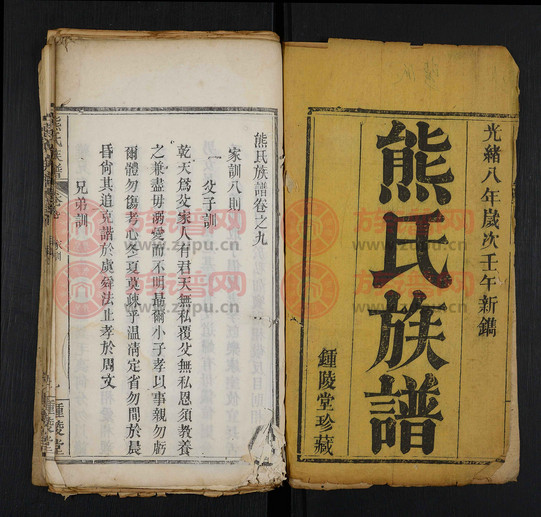 光緒八年歲次壬午新鐫
熊氏族譜
鍾陵堂珍藏
熊氏族譜卷之九
家訓八則
一
父子訓
乾天爲父家人有君天無私覆父無私恩須教養
之兼盡毋溺愛而不明曷爾小子孝以事親勿虧
爾體勿傷考心冬夏莫疎乎溫凊定省勿間於晨
昏尙其追克諧於虞舜法止孝於周文
兄弟訓
熊氏族譜
家訓
鍾陵堂
族譜网
www.zupu.cn